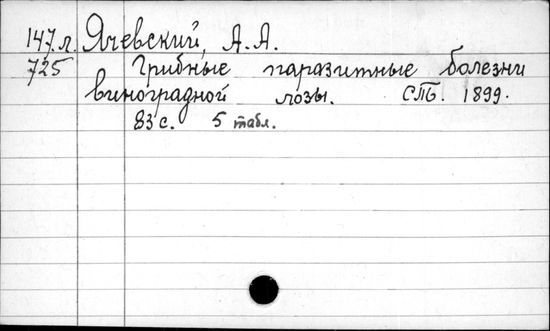 147.л. Ячевский, А.А.
725 Грибные паразитные болезни
виноградной лозы. СПБ. 1899.
83 с. 5 табл.